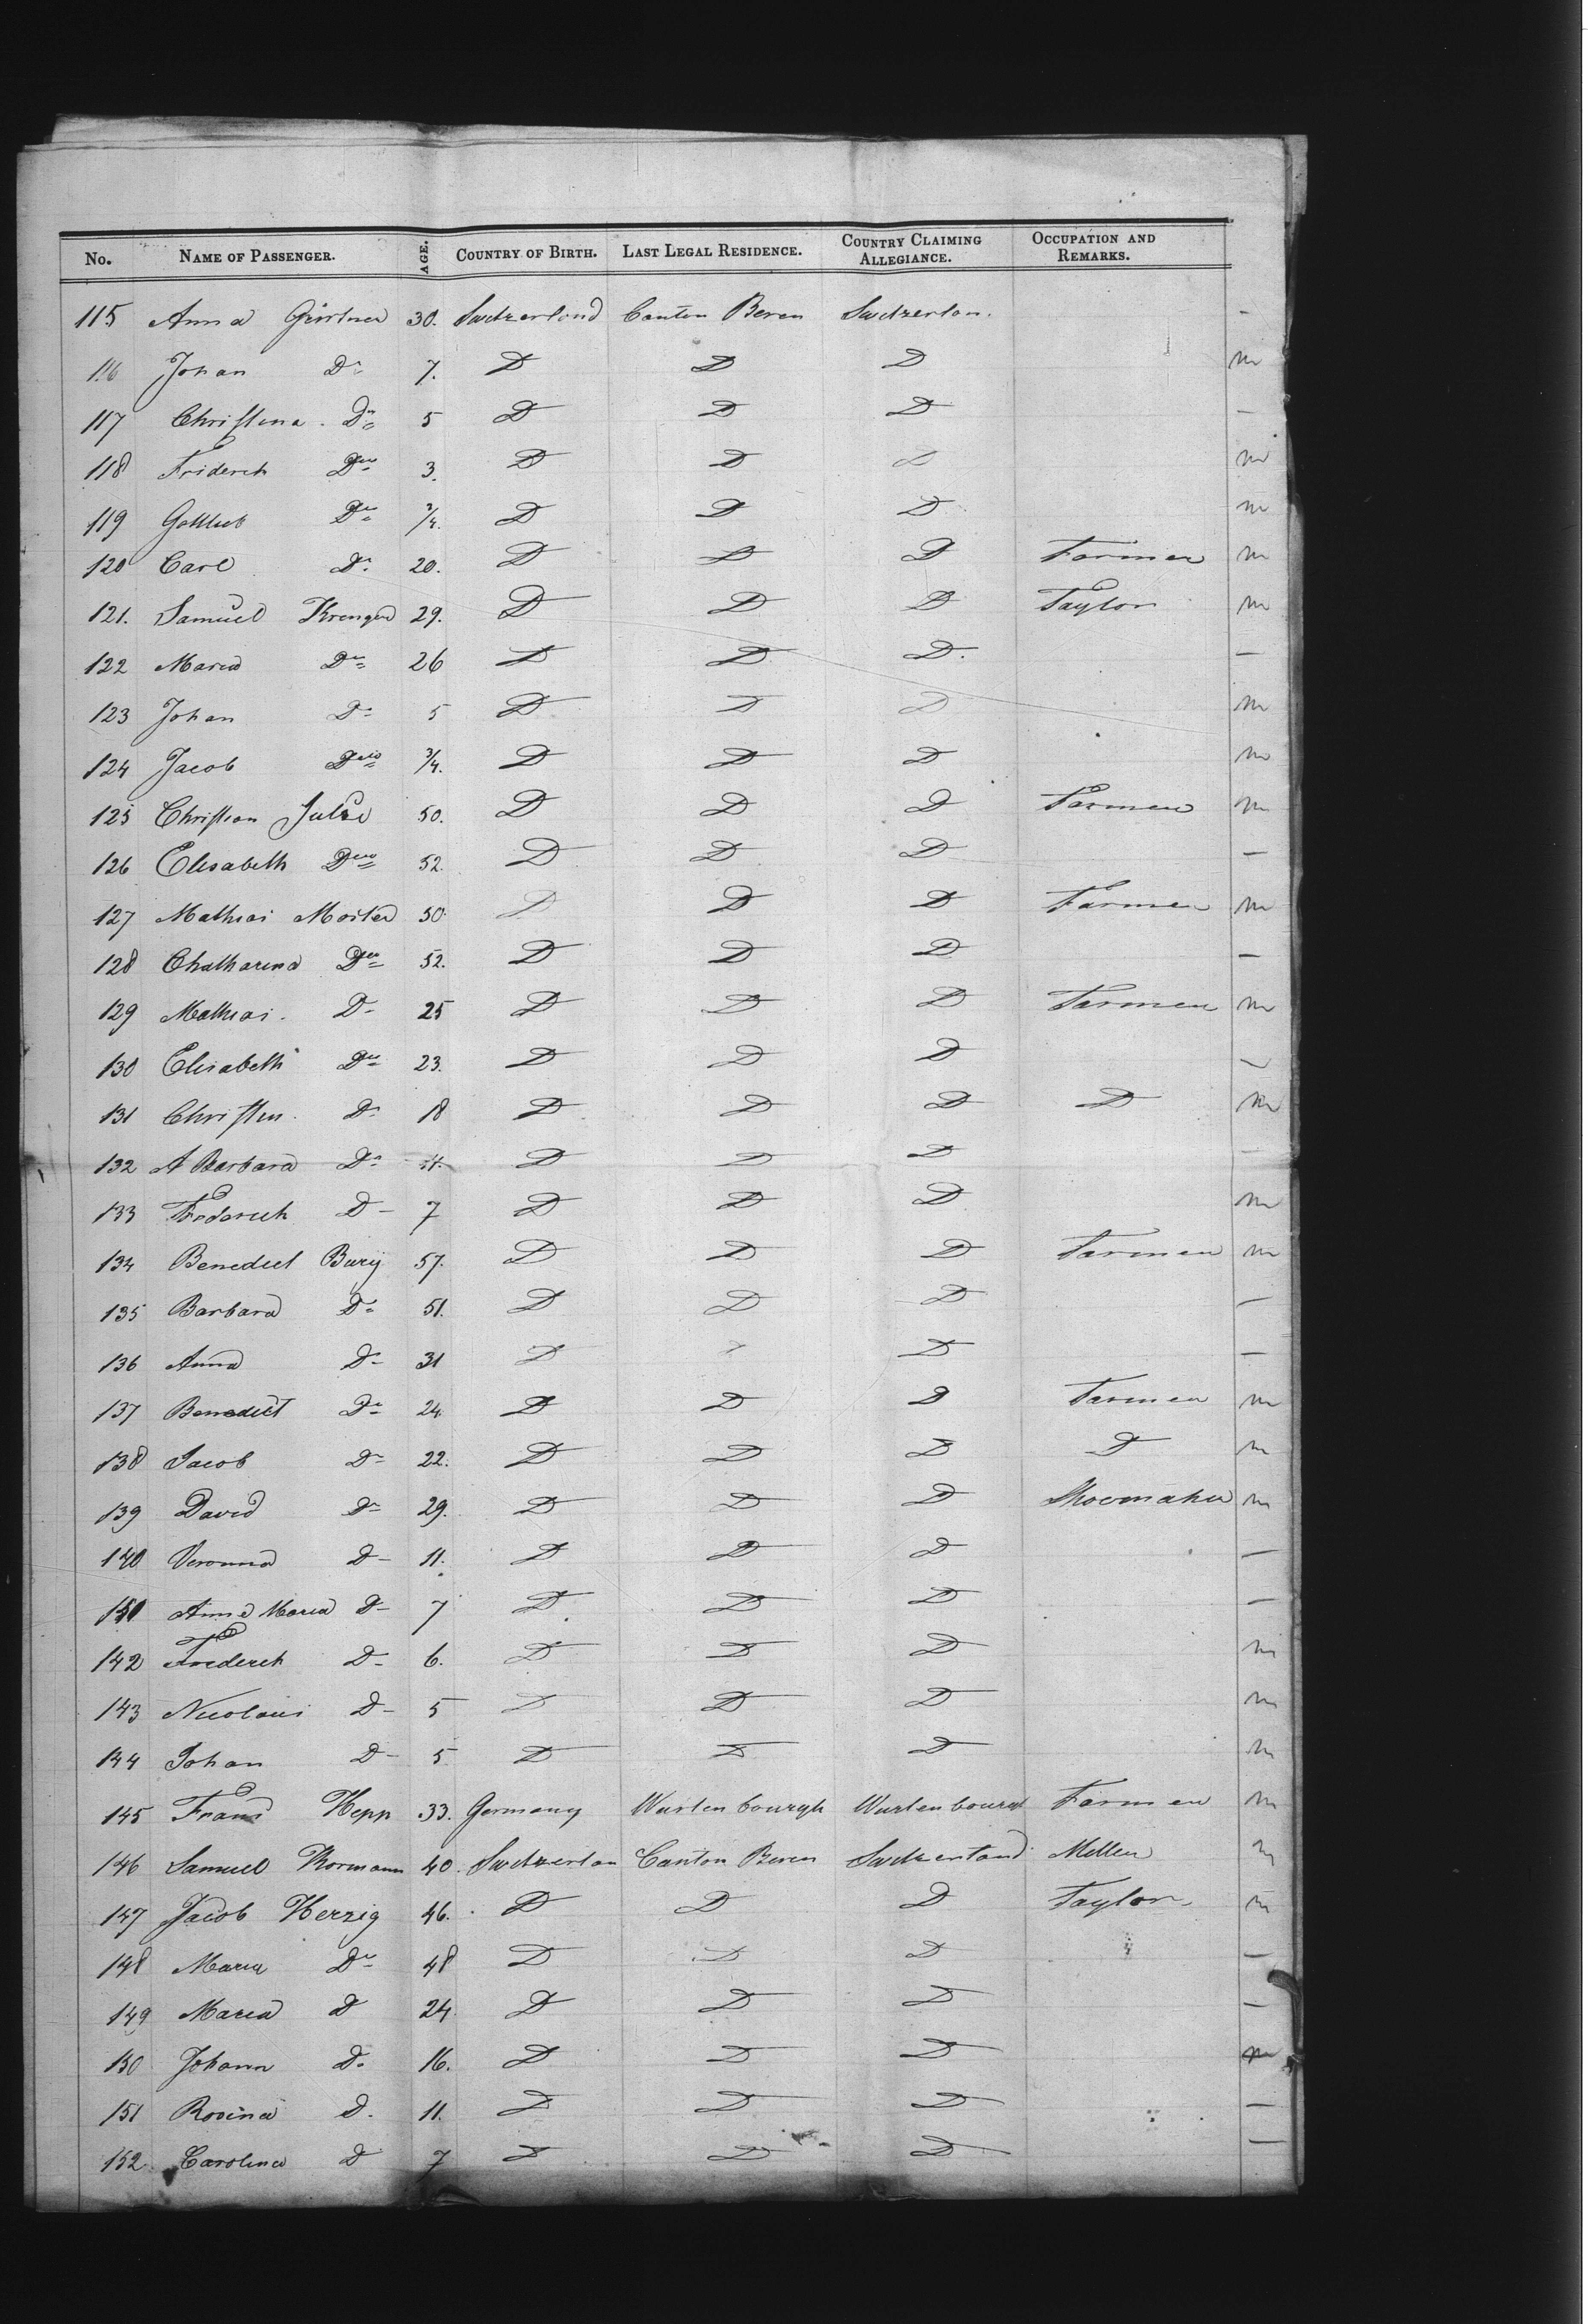 No. NAME OF PASSENGER. AGE. COUNTRY OF BIRTH. LAST LEGAL RESIDENCE. COUNTRY CLAIMING ALLEGIANCE. OCCUPATION AND REMARKS.
115 Anna 30. Switzerland Canton Beren Switzerlan. -
116 Johan Do 7. D D D m
117 Christina. Do 5 D D D -
118 Friderch Do 3. D D D m
119 Gottlieb Do 3/4. D D D m
120 Carl Do 20. D D D Farmer m
121. Samuel Krenger 29. D D D Taylor m
122 Maria Do 26 D D D. -
123 Johan Do 5 D D D m
124 Jacob Do 3/4. D D D m
125 Christian 50. D D D Farmer m
126 Elisabeth Do 52. D D D -
127 Mathias Moster 50. D D D Farmer m
128 Chatharina Do 52. D D D -
129 Mathias. D- 25 D D D Farmer m
130 Elisabeth Do 23. D D D -
131 Christen. Do 18 D D D D m
132 A Barbara Do D D D -
133 Frederich D- 7 D D D m
134 Benedict Bury 57. D D D Farmer m
135 Barbara Do 51. D D D -
136 Anna D- 31 D D D -
137 Benedict Do 24. D D D Farmer m
138 Jacob Do 22. D D D D m
139 David Do 29. D D D Shoemaker m
140 Veronna D- 11. D D D -
141 Anna Maria D- 7 D D D -
142 Frederch D- 6. D D D m
143 Nicolaus D- 5 D D D m
144 Johan D- 5 D D D m
145 Frans Hepp 33. Germany Wurtenbourgh Wurtenbourgh Farmer m
146 Samuel Kormann 40. Switzerlan Canton Beren Switzerland Miller m
147 Jacob Herzig 46. D D D Taylor m
148 Maria Do 48 D D D -
149 Maria D 24. D D D -
150 Johann Do 16. D D D m
151 Rosina D. 11. D D D -
152 Carolina D 7 D D D -